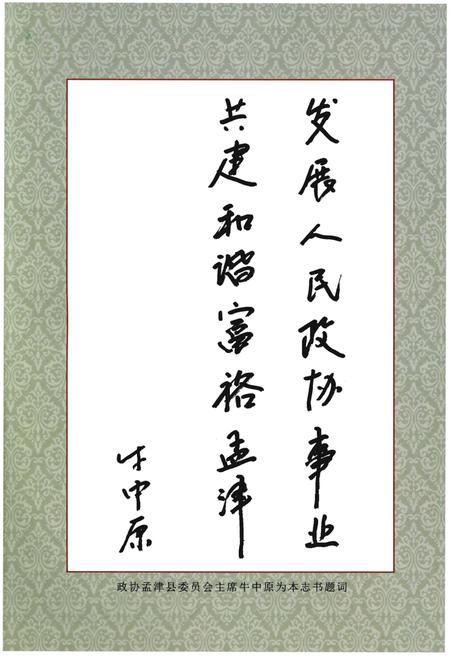 发展人民政协事业
共建和谐富裕孟津
牛中原
政协孟津县委员会主席牛中原为本志书题词